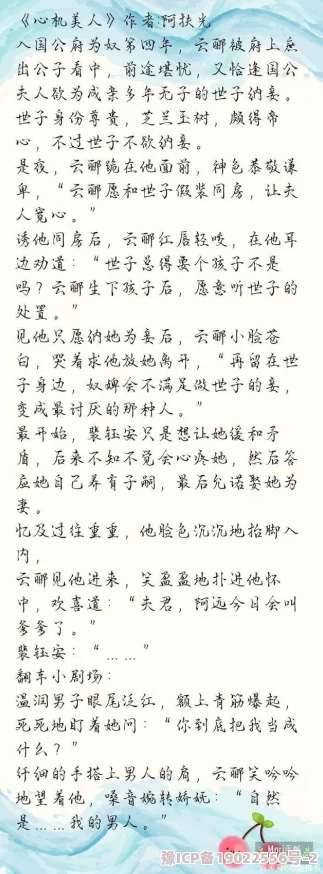 《心机美人》作者:阿扶光
入国公府为奴第四年，云郦被府上庶
出公子看中，前途堪忧，又恰逢国公
夫人欲为成亲多年无子的世子纳妾。
世子身份尊贵，芝兰玉树，颇得帝
心，不过世子不欲纳妾。
是夜，云郦跪在他面前，神色恭敬谦
卑，“云郦愿和世子假装同房，让夫
人宽心。”
诱他同房后，云郦红唇轻咬，在他耳
边劝道：“世子总得要个孩子不是
吗？云郦生下孩子后，愿意听世子的
处置。”
见他只愿纳她为妾后，云郦小脸苍
白，哭着求他放她离开，“再留在世
子身边，奴婢会不满足做世子的妾，
变成最讨厌的那种人。”
最开始，裴钰安只是想让她缓和矛
盾，后来不知不觉会心疼她，然后答
应她自己养育子嗣，最后允诺娶她为
妻。
忆及过往重重，他脸色沉沉地抬脚入
内，
云郦见他进来，笑盈盈地扑进他怀
中，欢喜道：“夫君，阿远今日会叫
爹爹了。”
裴钰安：“……”
翻车小剧场：
温润男子眼尾泛红，额上青筋爆起，
死死地盯着她问：“你到底把我当成
什么？”
纤细的手搭上男人的肩，云郦笑吟吟
地望着他，嗓音婉转娇妩：“自然
是……我的男人。”
豫ICP备19022556号-2